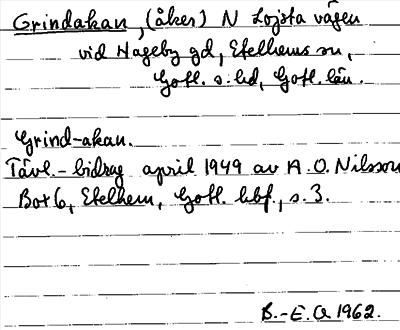 Grindakan, (åker) N Lojsta vägen
vid Hageby gd, Etelhems sn,
Gotl. s: hd, Gotl. län.
Grind-akan.
Tävl.-bidrag april 1949 av A.O. Nilsson
Box 6, Etelhem, Gotl. hbf., s. 3.
B.-E. O 1962.